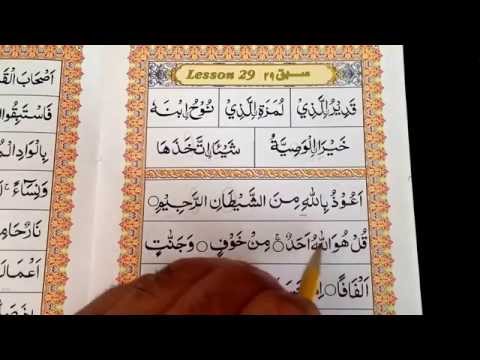 Lesson 29 سبق ۲۹
قَدِيْرُ ۨالَّذِيْ لُمَزَةِ ۨالَّذِيْ نُوْحُ ۨابْنَهٗ
خَيْرَا ۨالْوَصِيَّةُ شَيْئَا ۨاتَّخَذَهَا
اَعُوْذُ بِاللّٰهِ مِنَ الشَّيْطَانِ الرَّجِيْمِ ○
قُلْ هُوَ اللّٰهُ اَحَدٌ ○ مِنْ خَوْفٍ ○ وَجَنّٰتٍ
اَلْفَافًا ○
اَصْحَابَ
فَاسْتَبِقُوا
بِالْوَادِ
وَنِسَآءً